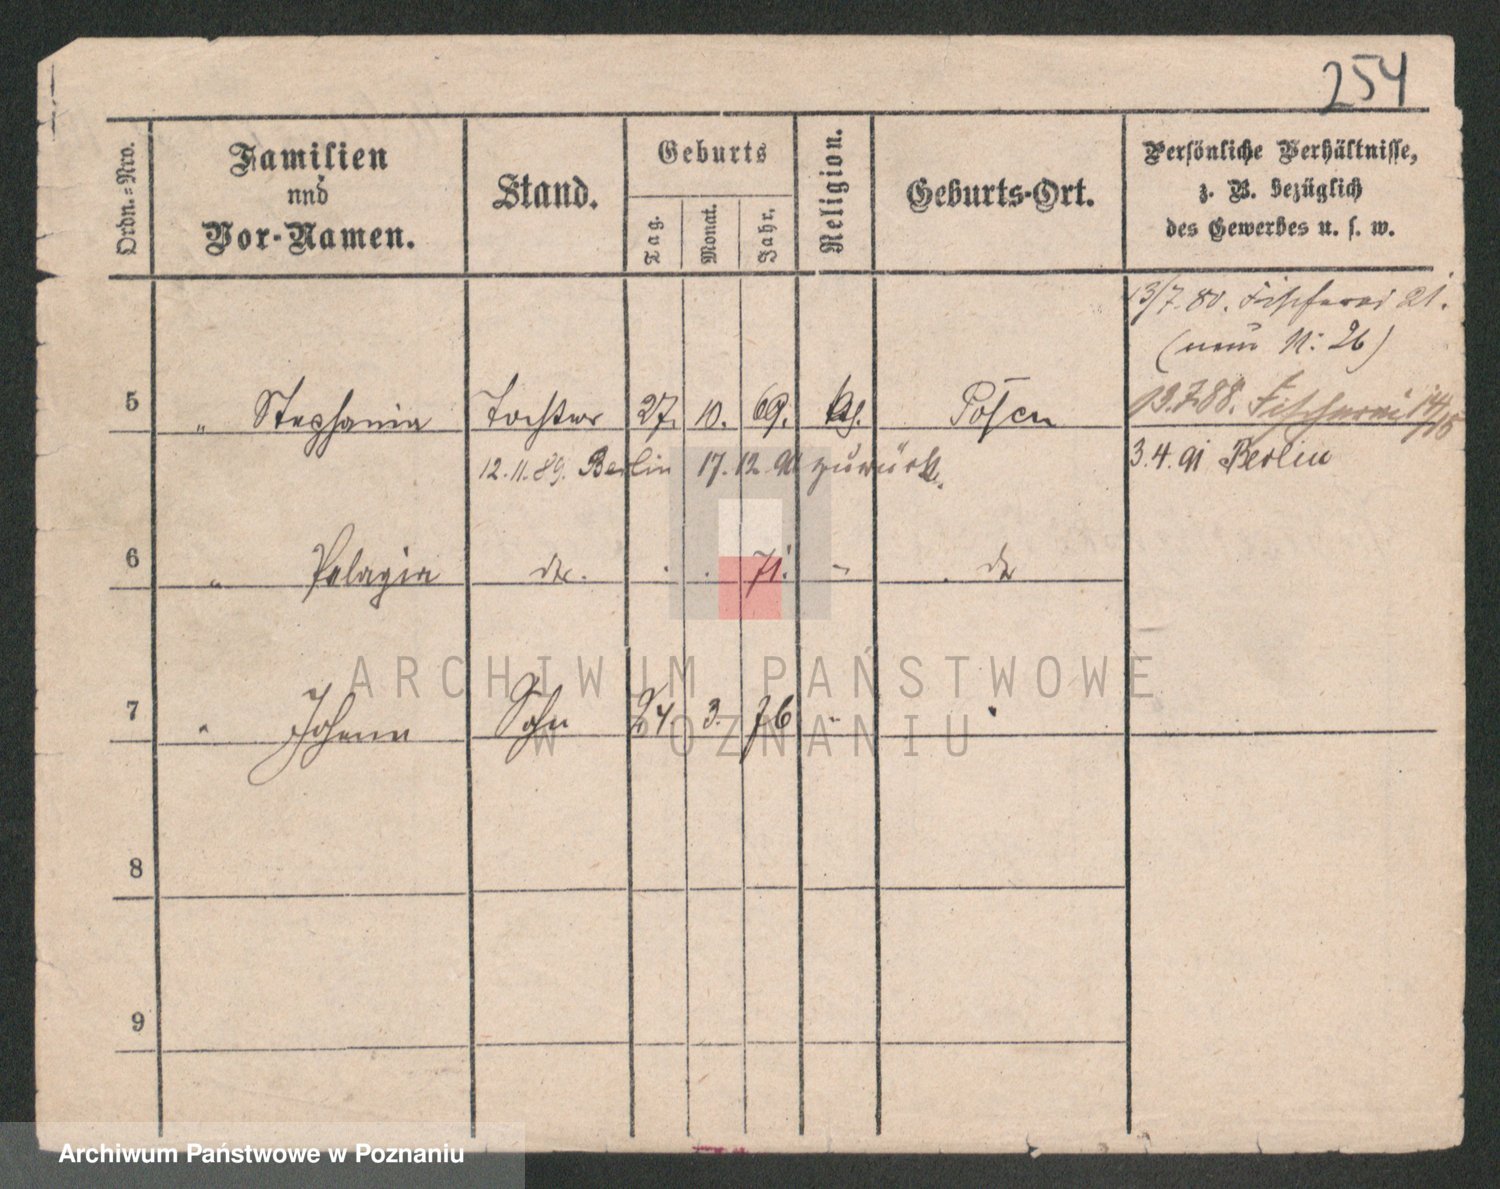 254
Ordn.=Nro.
Familien
und
Vor-Namen.
Stand.
Geburts
Tag.
Monat.
Jahr.
Religion.
Geburts-Ort.
Persönliche Verhältnisse,
z. B. bezüglich
des Gewerbes u. s. w.
13/7.80. Fischerei 21.
(neu N: 26)
5 " Stephania Tochter 27. 10. 69. kth. Posen 19.7.88. Fischerei 14/15
12.11.89. Berlin 17.12.90 zurück. 3.4.91 Berlin
6 " Pelagia do. . . 71. " . do
7 " Johann Sohn 24. 3. 76 " "
8
9
ARCHIWUM PAŃSTWOWE
W POZNANIU
Archiwum Państwowe w Poznaniu